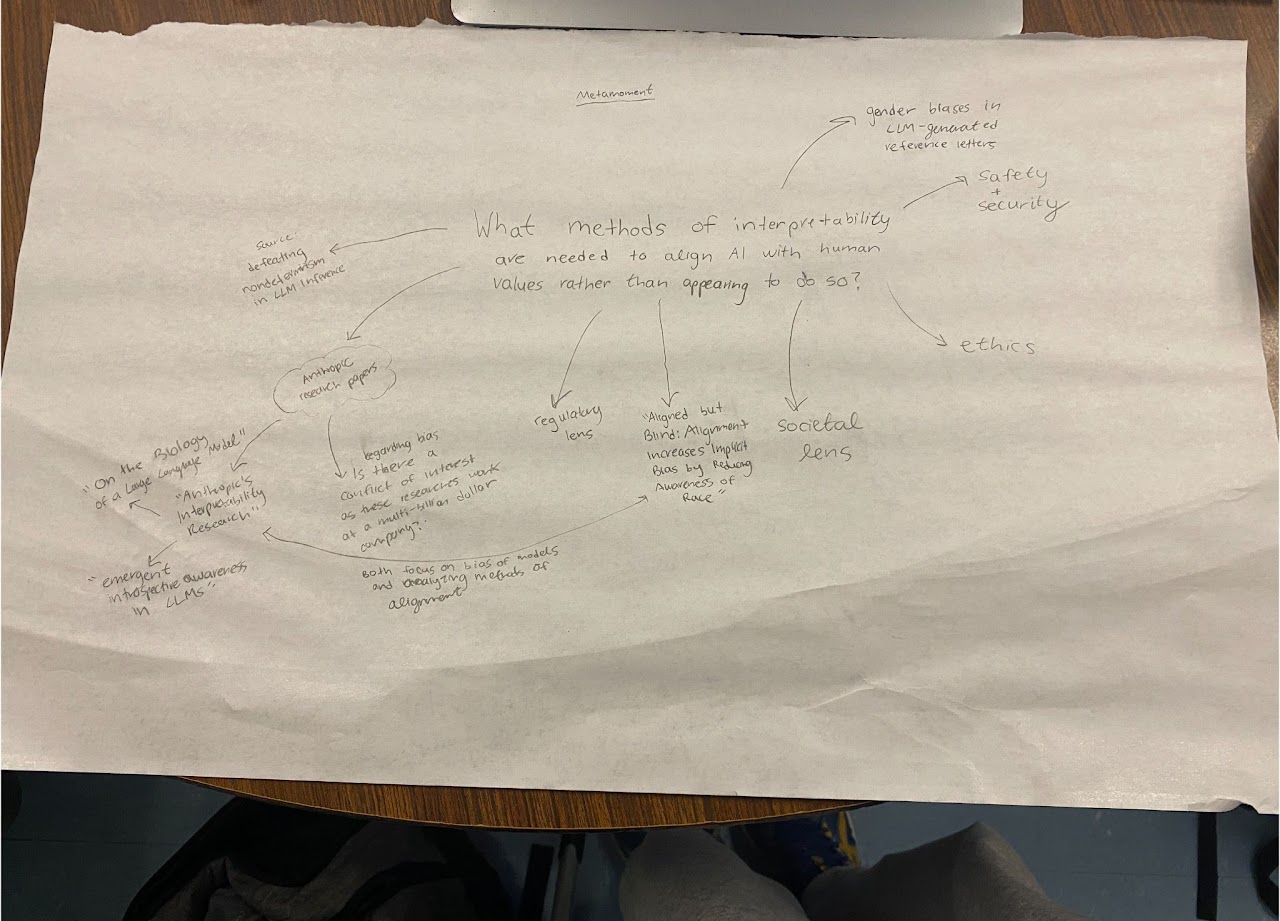 Metamoment
gender biases in
LLM-generated
reference letters
safety
+
security
What methods of interpretability
are needed to align AI with human
values rather than appearing to do so?
source:
defeating
nondeterminism
in LLM Inference
ethics
Anthropic
research papers
regulatory
lens
"Aligned but
Blind: Alignment
Increases Implicit
Bias by Reducing
Awareness of
Race"
societal
lens
"On the Biology
of a Large Language Model"
"Anthropic's
Interpretability
Research"
"emergent
introspective awareness
in LLMs"
regarding bias
Is there a
conflict of interest
as these researches work
at a multi-billion dollar
company?
Both focus on bias of models
and analyzing methods of
alignment